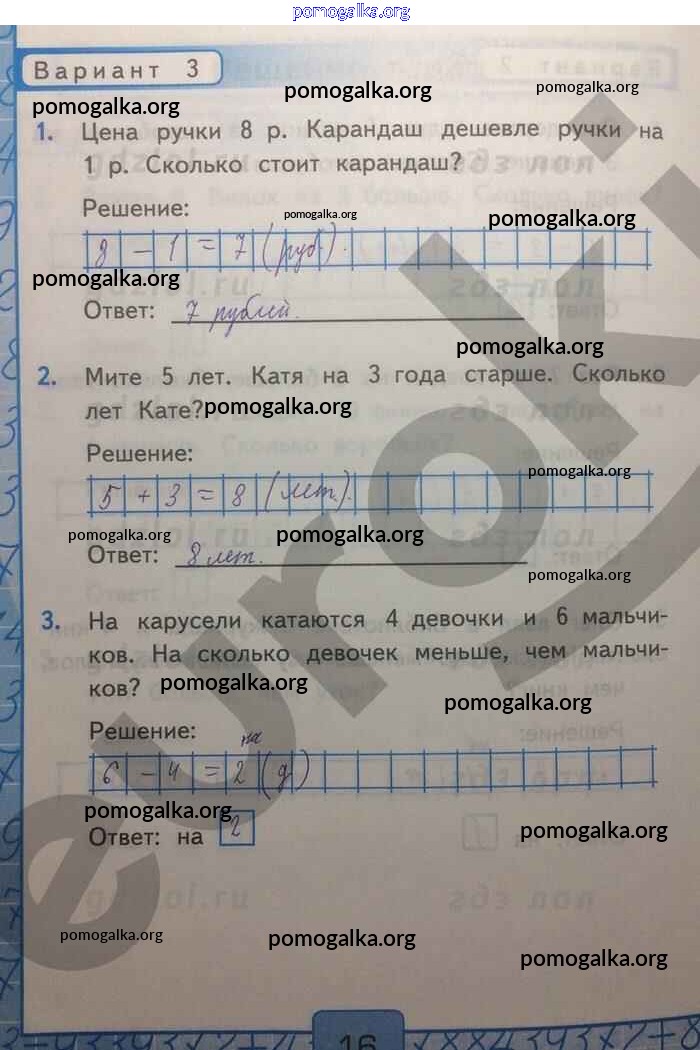 pomogalka.org
Вариант 3
pomogalka.org pomogalka.org pomogalka.org
1. Цена ручки 8 р. Карандаш дешевле ручки на
1 р. Сколько стоит карандаш?
Решение:
pomogalka.org pomogalka.org
8 - 1 = 7 (руб).
pomogalka.org
Ответ: 7 рублей.
pomogalka.org
2. Мите 5 лет. Катя на 3 года старше. Сколько
лет Кате? pomogalka.org
Решение:
pomogalka.org
5 + 3 = 8 (лет).
pomogalka.org pomogalka.org
Ответ: 8 лет.
pomogalka.org
3. На карусели катаются 4 девочки и 6 мальчи-
ков. На сколько девочек меньше, чем мальчи-
ков? pomogalka.org
pomogalka.org
Решение:
на
6 - 4 = 2 (д)
pomogalka.org
Ответ: на 2
pomogalka.org
pomogalka.org pomogalka.org
pomogalka.org
16
euroki